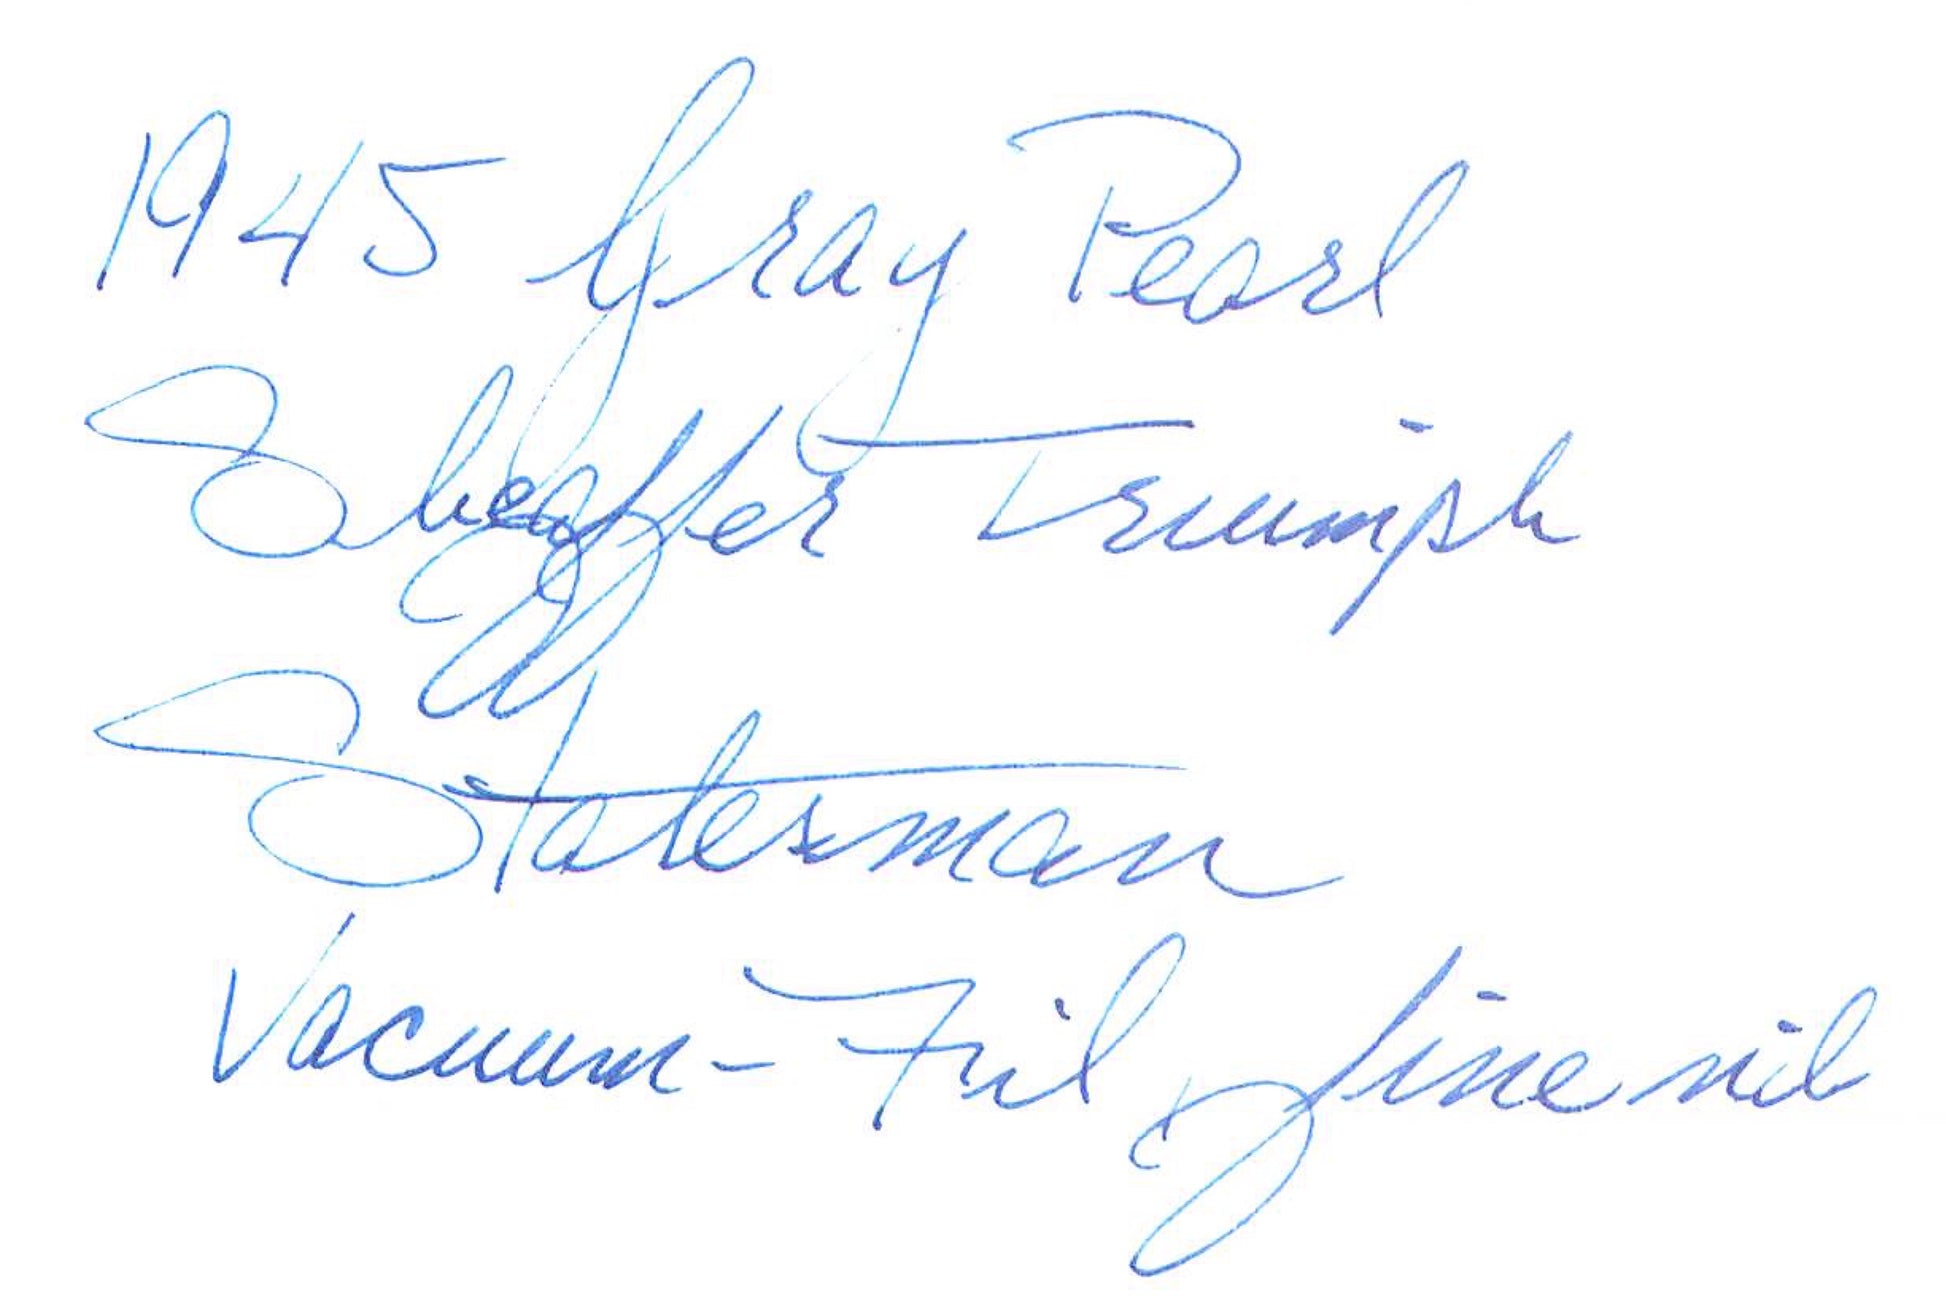 1945 Gray Pearl
Sheaffer Triumph
Statesman
Vacuum-Fil fine nib